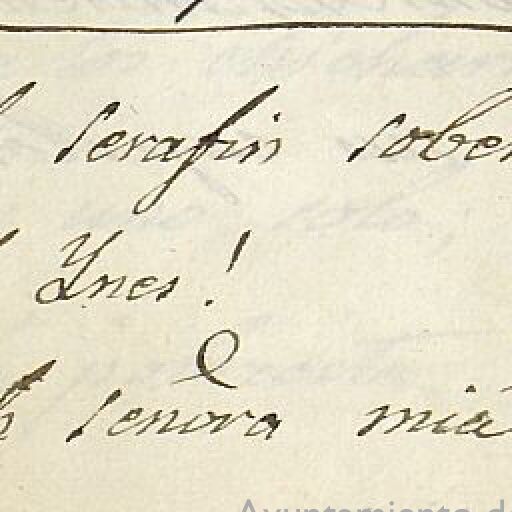 serafin sober
Ynes!
señora mia
Ayuntamiento de